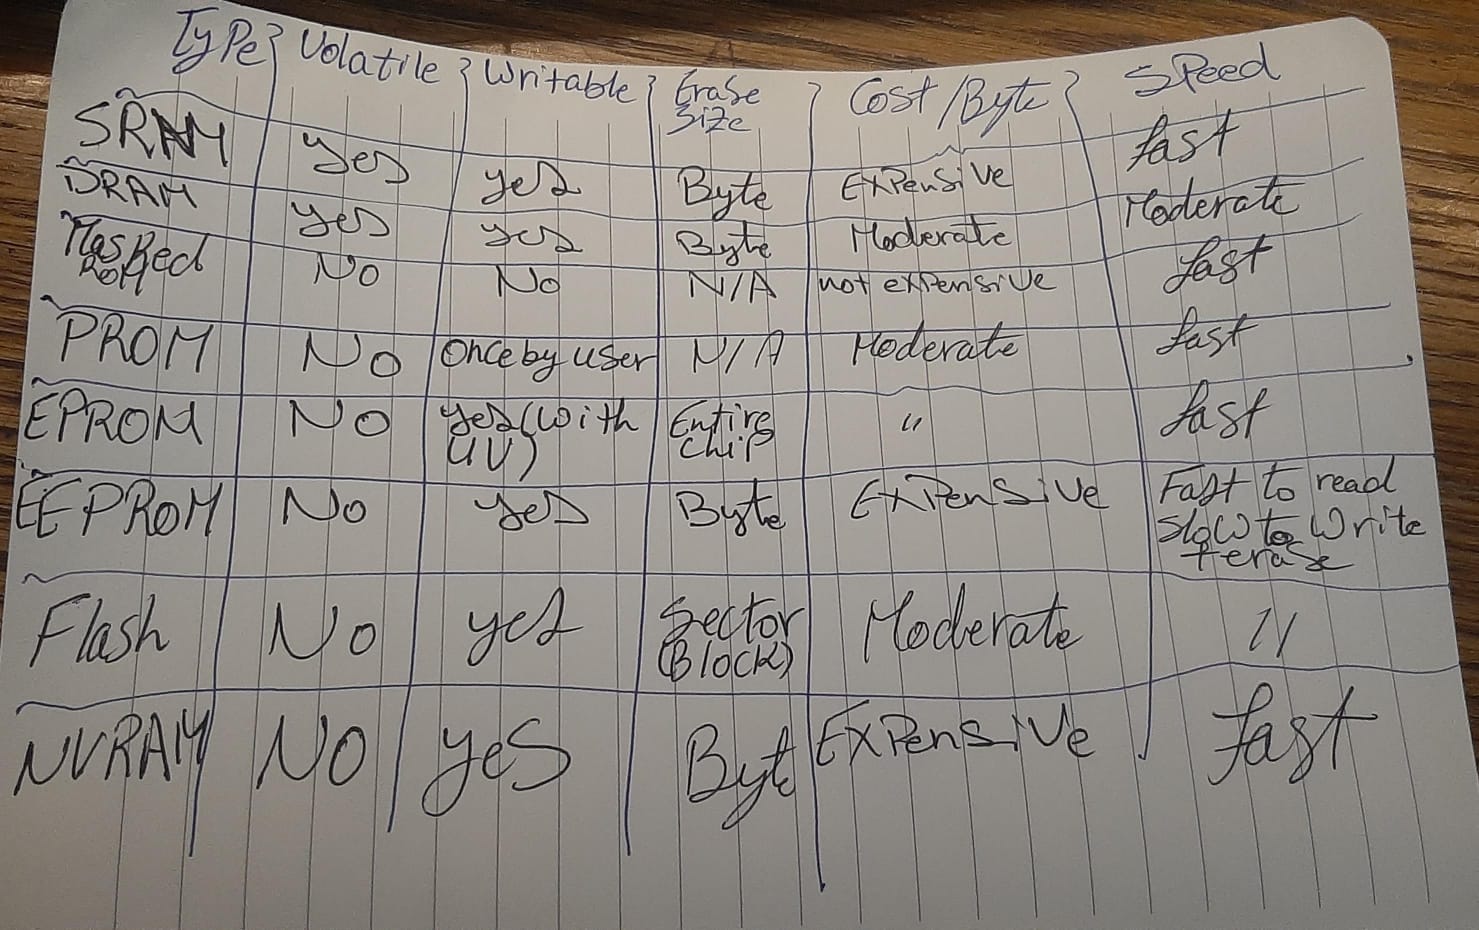 Type Volatile Writable Erase Size Cost/Byte Speed
SRAM Yes yes Byte Expensive fast
DRAM Yes yes Byte Moderate Moderate
Masked ROM No No N/A not expensive fast
PROM No Once by user N/A Moderate fast
EPROM No yes (with UV) Entire chip " fast
EEPROM No yes Byte Expensive Fast to read slow to write + erase
Flash No yes Sector (Block) Moderate "
NVRAM No yes Byte Expensive fast